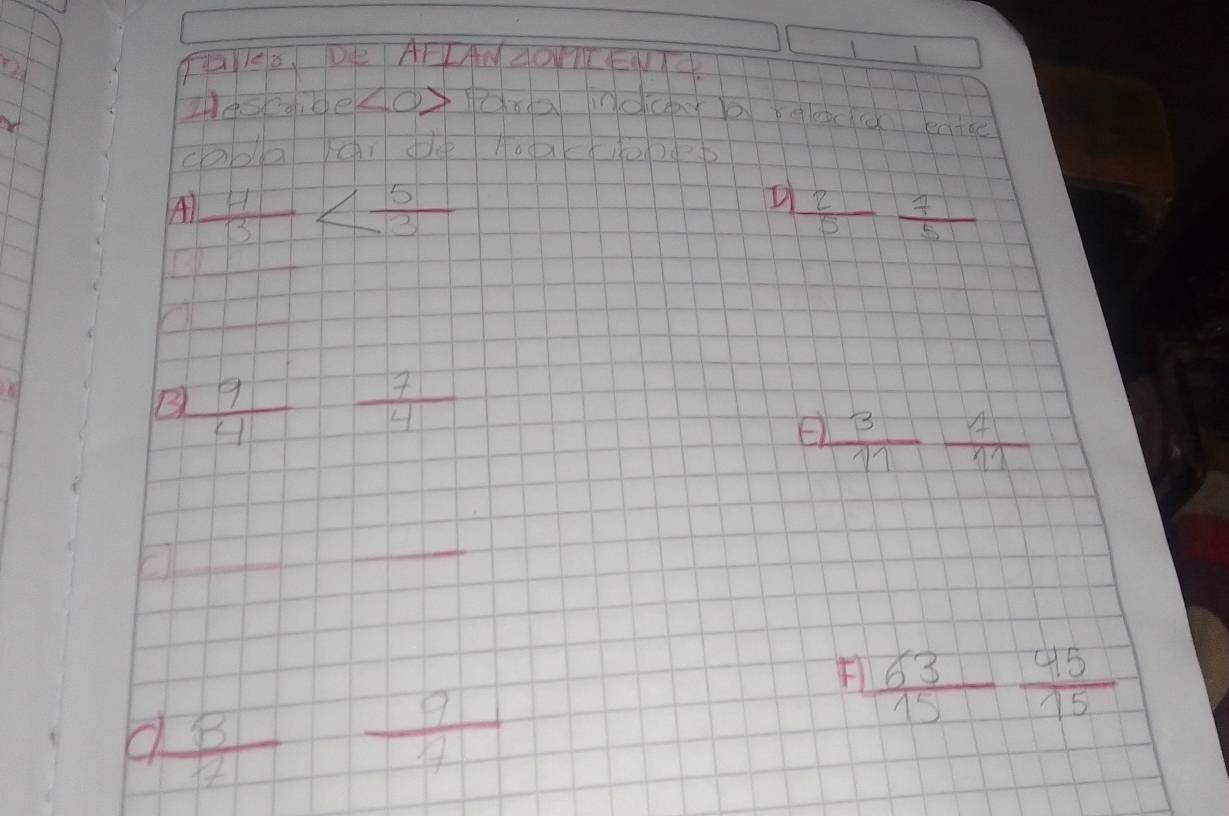 DE AFIANZOMIENTO.
escribe < O > Para indicar la relacion entre
cada Par de fracciones
A) 4/3 < 5/3
D) 2/5 7/5
B)
C)
B) 9/4 7/4
E) 3/11 /11
C)
F) 63/15 45/15
C) 8/7 9/7